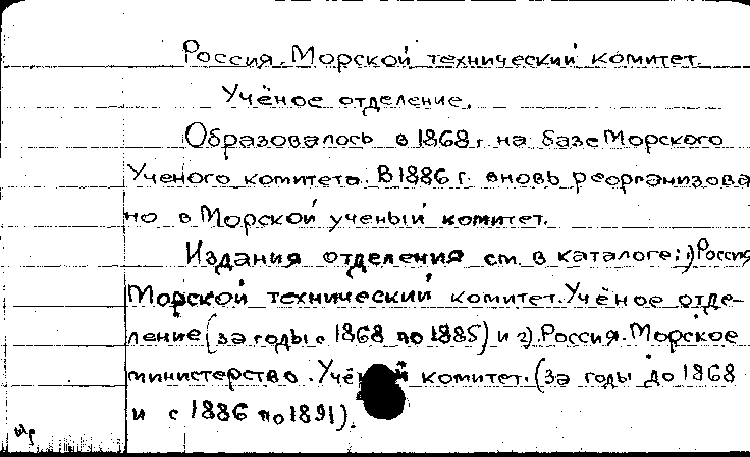 Россия. Морской технический комитет.
Учёное отделение.
Образовалось в 1868 г. на базе Морского
Ученого комитета. В 1886 г. вновь реорганизова
но в Морской ученый комитет.
Издания отделения см. в каталоге: 1) Россия
Морской технический комитет. Учёное отде-
ление (за годы с 1868 по 1885) и 2). Россия. Морское
министерство. Учёный комитет. (за годы до 1868
и с 1886 по 1891).